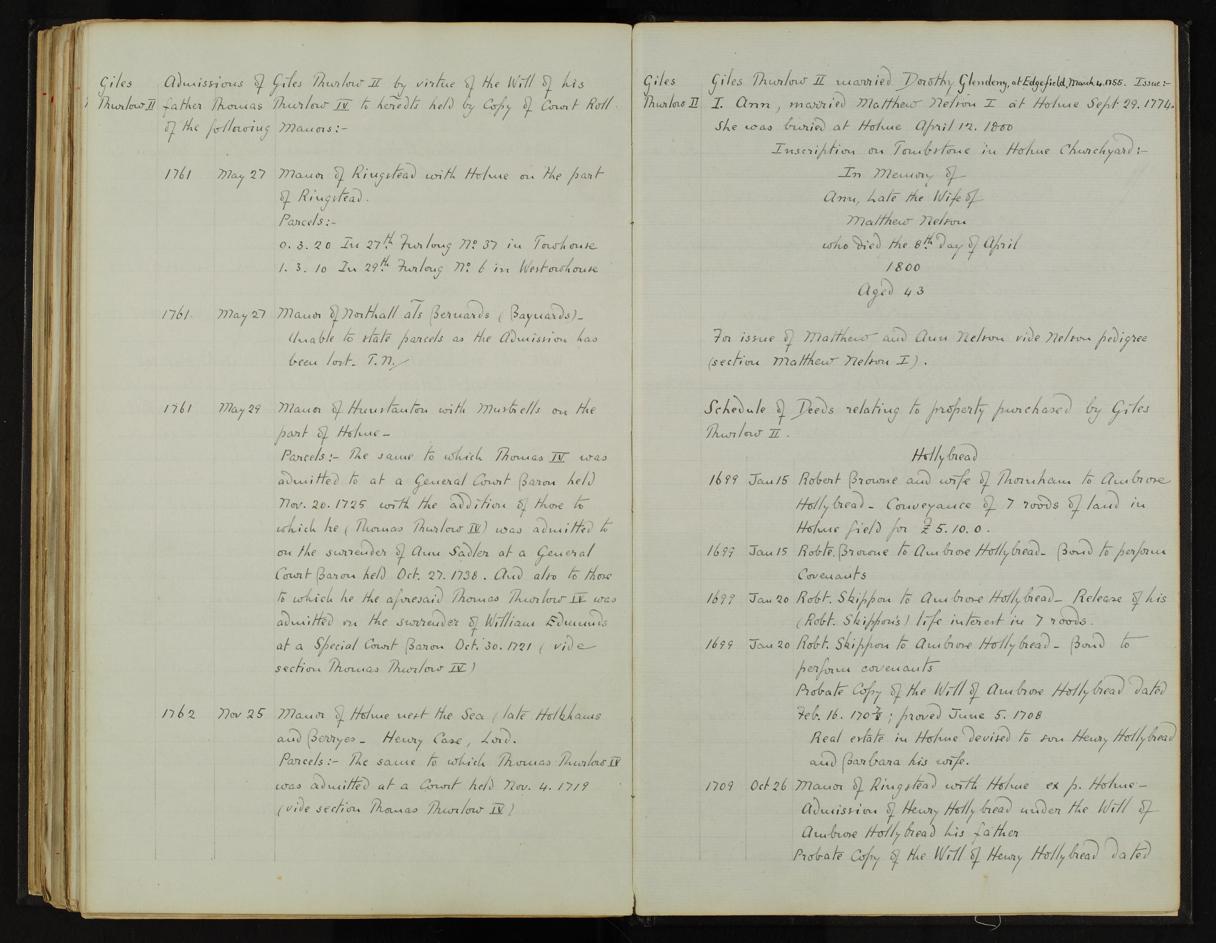 Giles
Thurlow II
Admissions of Giles Thurlow II by virtue of the Will of his
father Thomas Thurlow IV to heredts held by Copy of Court Roll
of the following Manors:-
1761 May 27 Manor of Ringstead with Holme on the part
of Ringstead.
Parcels:-
0. 3. 20 In 27th Furlong No 37 in Towhouse
1. 3. 10 In 29th Furlong No 6 in Westowhouse
1761 May 27 Manor of Northall als Bernards (Baynards)-
Unable to state parcels as the Admission has
been lost- T.N.
1761 May 29 Manor of Hunstanton with Mustrells on the
part of Holme-
Parcels:- The same to which Thomas IV was
admitted to at a General Court Baron held
Nov. 20. 1725 with the addition of those to
which he (Thomas Thurlow IV) was admitted to
on the surrender of Ann Sadler at a General
Court Baron held Oct. 27. 1738. And also to those
to which he the aforesaid Thomas Thurlow IV was
admitted on the surrender of William Edmunds
at a Special Court Baron Oct. 30. 1721 (vide
section Thomas Thurlow IV)
1762 Nov 25 Manor of Holme next the Sea (late Holkhams
and Berryes- Henry Case, Lord.
Parcels:- The same to which Thomas Thurlow IV
was admitted at a Court held Nov. 4. 1719
(vide section Thomas Thurlow IV)
Giles
Thurlow II
Giles Thurlow II married Dorothy Glendeny, at Edgefield, March 4. 1755. Issue:-
I. Ann, married Matthew Nelson I at Holme Sept 29. 1774.
She was buried at Holme April 12. 1800
Inscription on Tombstone in Holme Churchyard:-
In Memory of
Ann, Late the Wife of
Matthew Nelson
who died the 8th day of April
1800
Aged 43
For issue of Matthew and Ann Nelson vide Nelson pedigree
(section Matthew Nelson I).
Schedule of Deeds relating to property purchased by Giles
Thurlow II.
Hollybread
1699 Jan 15 Robert Browne and wife of Thornham to Ambrose
Hollybread- Conveyance of 7 roods of land in
Holme field for £5. 10. 0.
1699 Jan 15 Robte. Browne to Ambrose Hollybread- Bond to perform
Covenants
1699 Jan 20 Robt. Skippon to Ambrose Hollybread- Release of his
(Robt. Skippon's) life interest in 7 roods.
1699 Jan 20 Robt. Skippon to Ambrose Hollybread- Bond to
perform covenants
Probate Copy of the Will of Ambrose Hollybread dated
Feb. 16. 170 7/8; proved June 5. 1708
Real estate in Holme devised to son Henry Hollybread
and Barbara his wife.
1709 Oct 26 Manor of Ringstead with Holme ex p. Holme-
Admission of Henry Hollybread under the Will of
Ambrose Hollybread his father
Probate Copy of the Will of Henry Hollybread dated